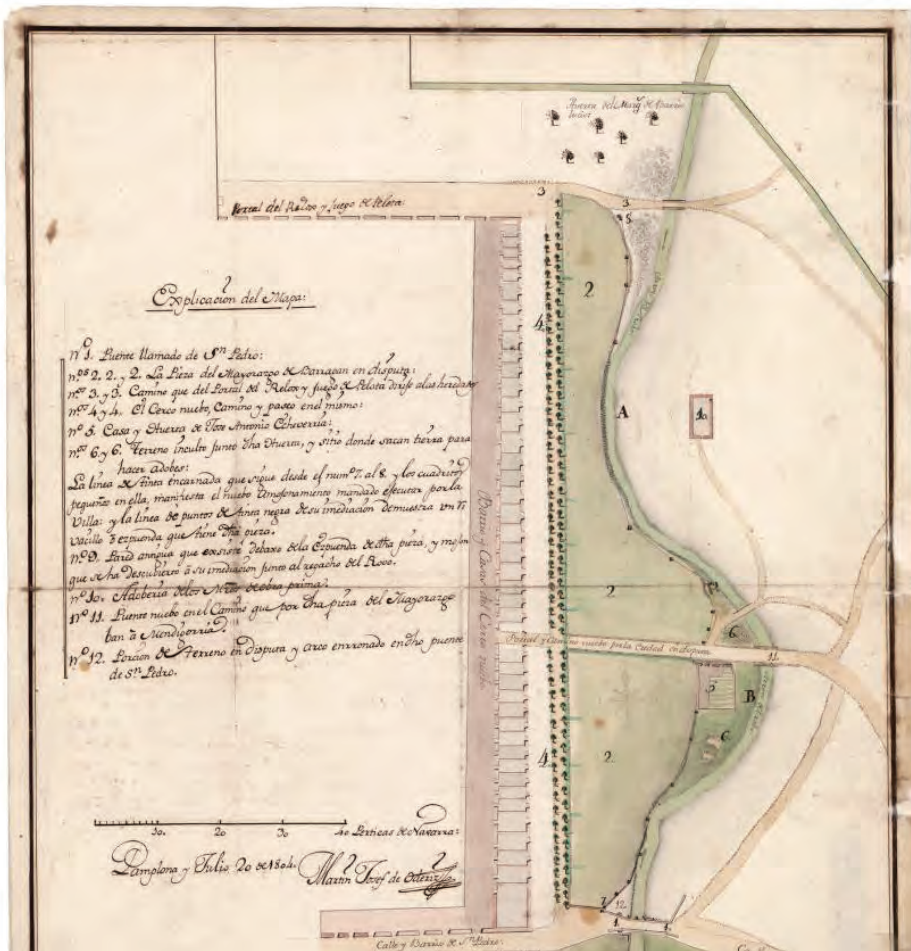 Huerta del Marq.s de
3
Portal del Relox y Juego de Pelota.
3
8
2
Explicacion del Mapa:
nº 1. Puente llamado de Sn Pedro:
nos 2. 2. y 2. La Pieza del Mayorazgo de Barragan en disputa:
nos 3. y 3. Camino que del Portal del Relox y Juego de Pelota dirije alas heredades
nos 4 y 4. El Cerco nuebo, Camino y paseo en el mismo:
nº 5. Casa y Huerta de Jose Antonio Echeverria:
nos 6 y 6. Terreno inculto junto dha Huerta, y sitio donde sacan tierra para
hacer adobes:
La linea de tinta encarnada que sigue desde el num.º 7. al 8. y los cuadritos
pequeños en ella, manifiesta el nuebo amojonamiento mandado efecutar por la
Villa: y la linea de puntos de tinta negra de su imediacion demuestra un Ri
vacillo ò ezpuenda que tiene dha pieza.
nº 9. Pared antigua que exsiste debaxo de la Ezpuenda de dha pieza, y mojon
que se ha descubierto à su imediacion junto al regacho del Rovo.
nº 10. Adoberia delos Mros de obra prima.
nº 11. Puente nuebo en el Camino que por dha pieza del Mayorazgo
ban à Mendigorria.
nº 12. Porcion de Terreno en disputa y arco enrronado en dho puente
de Sn Pedro.
4
A
10
Barrio y Casas del Cerco nuebo
2
6
Portal y Camino nuebo por la Ciudad en disputa
11
5
B
4
2
C
10. 20 30 40 Perticas de Navarra:
Pamplona y Julio 20 de 1804. Martin Josef de
7
12
1
Calle y Barrio de Sn Pedro.